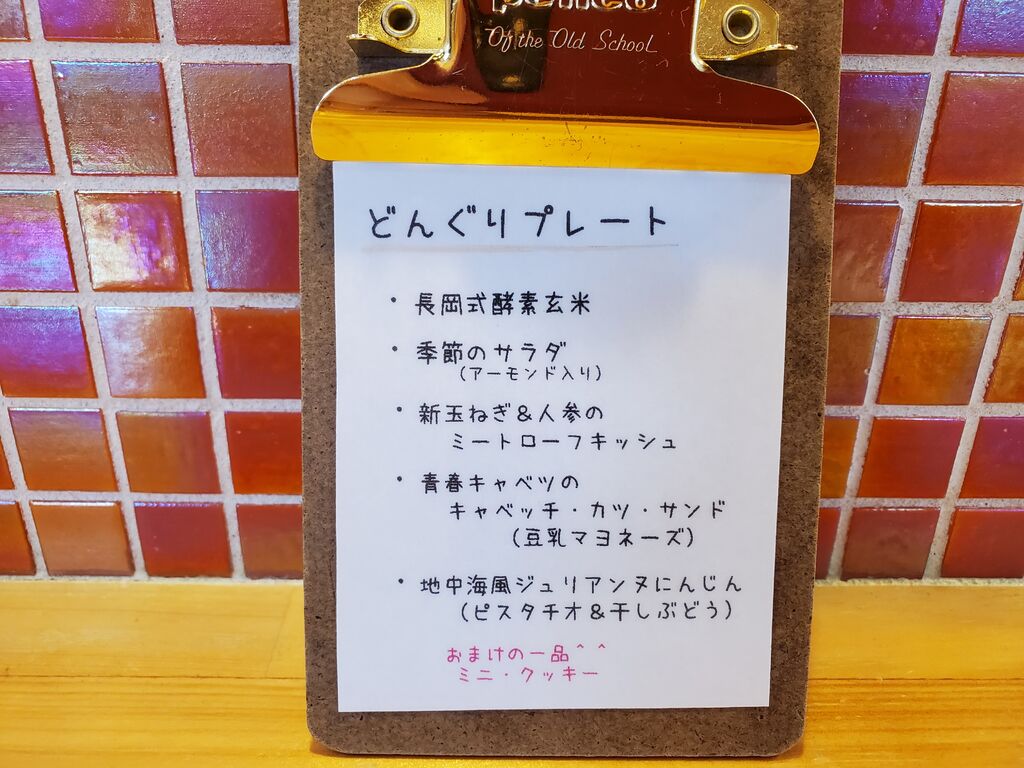 Of the Old School
どんぐりプレート
・長岡式酵素玄米
・季節のサラダ
(アーモンド入り)
・新玉ねぎ&人参の
ミートローフキッシュ
・青春キャベツの
キャベッチ・カツ・サンド
(豆乳マヨネーズ)
・地中海風ジュリアンヌにんじん
(ピスタチオ&干しぶどう)
おまけの一品^^
ミニ・クッキー